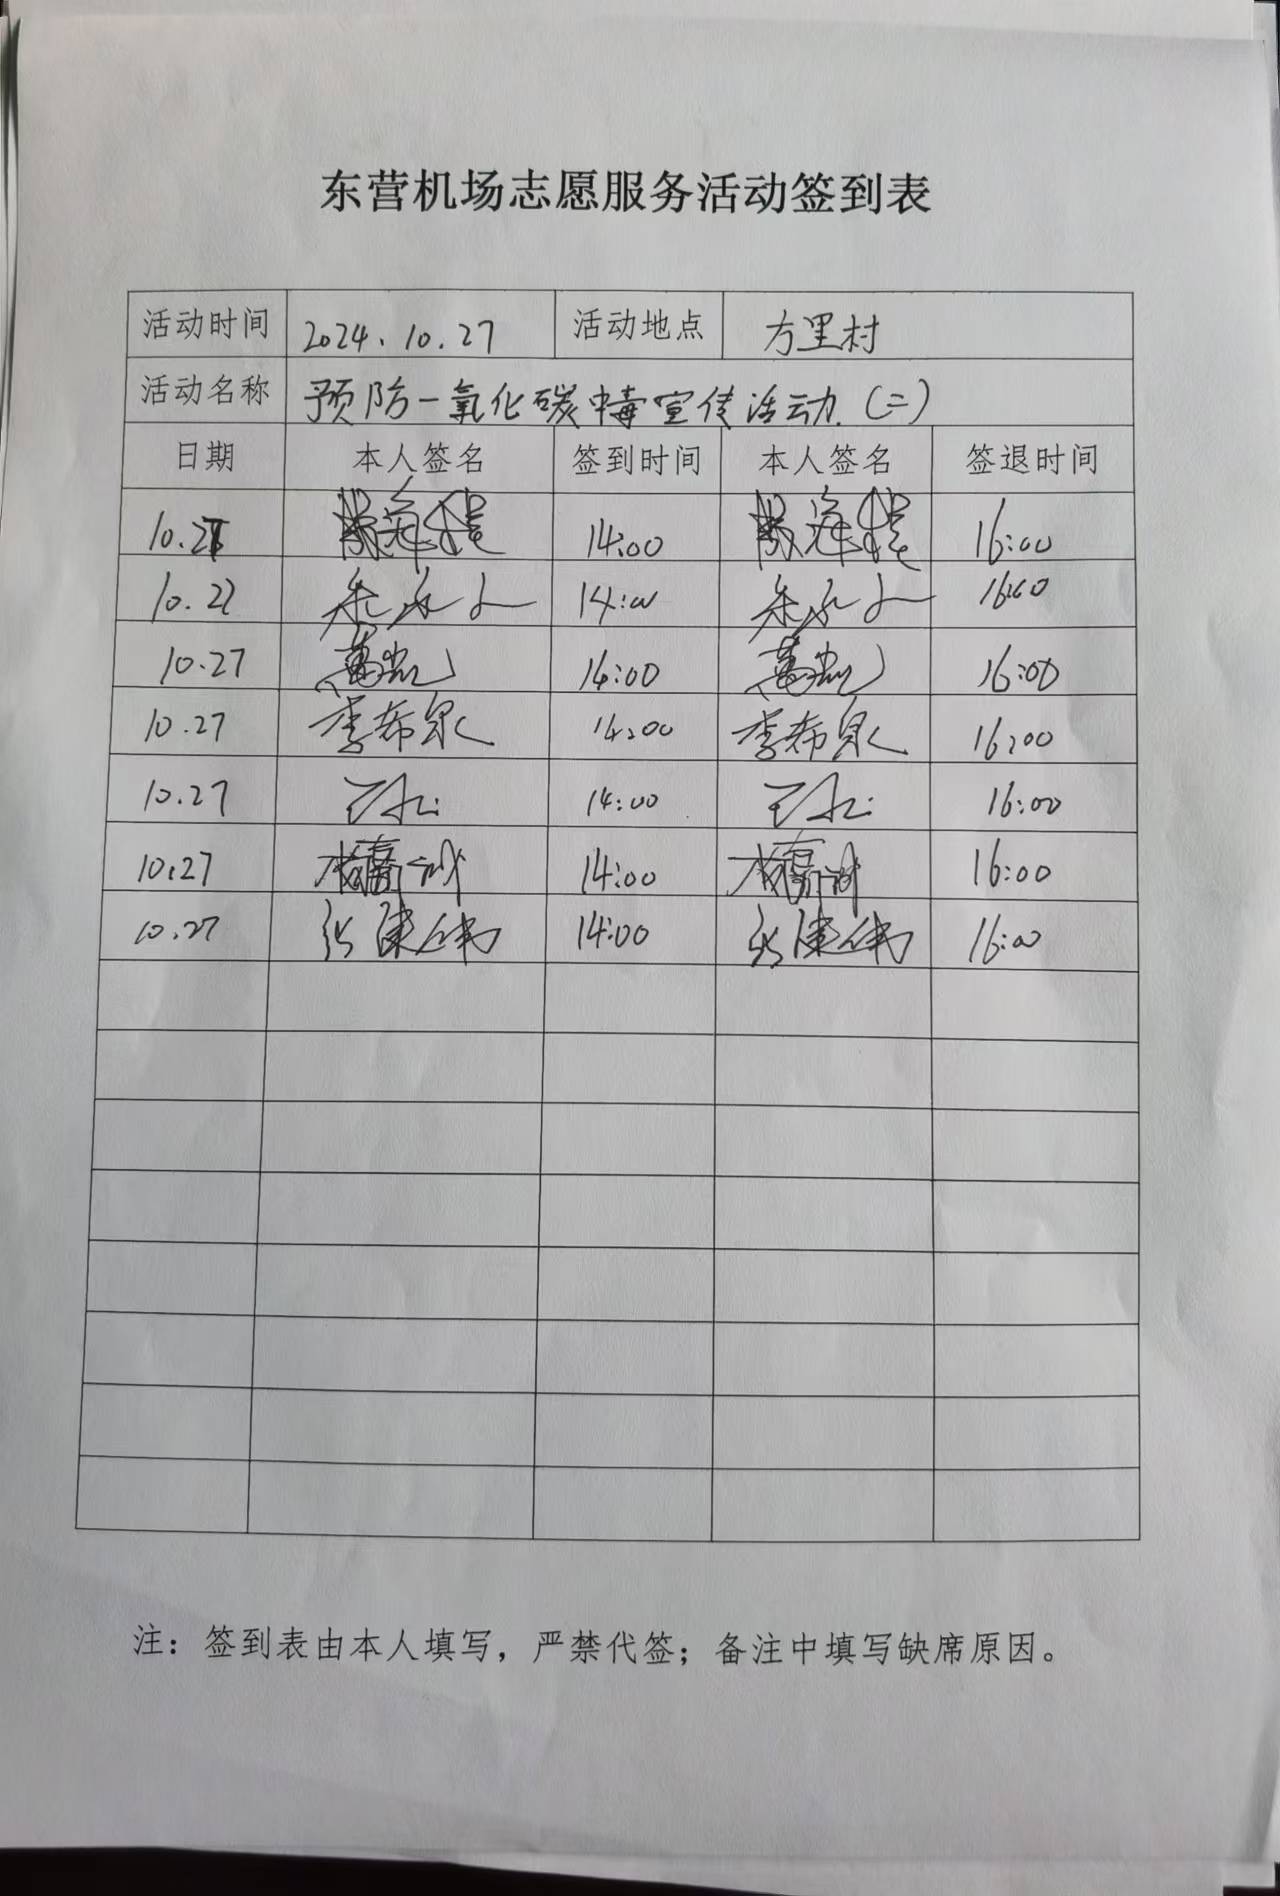 东营机场志愿服务活动签到表
活动时间 2024.10.27 活动地点 方里村
活动名称 预防一氧化碳中毒宣传活动(二)
日期 本人签名 签到时间 本人签名 签退时间
10.27 14:00 16:00
10.27 14:00 16:00
10.27 14:00 16:00
10.27 李希泉 14:00 李希泉 16:00
10.27 14:00 16:00
10.27 14:00 16:00
10.27 14:00 16:00
注：签到表由本人填写，严禁代签；备注中填写缺席原因。